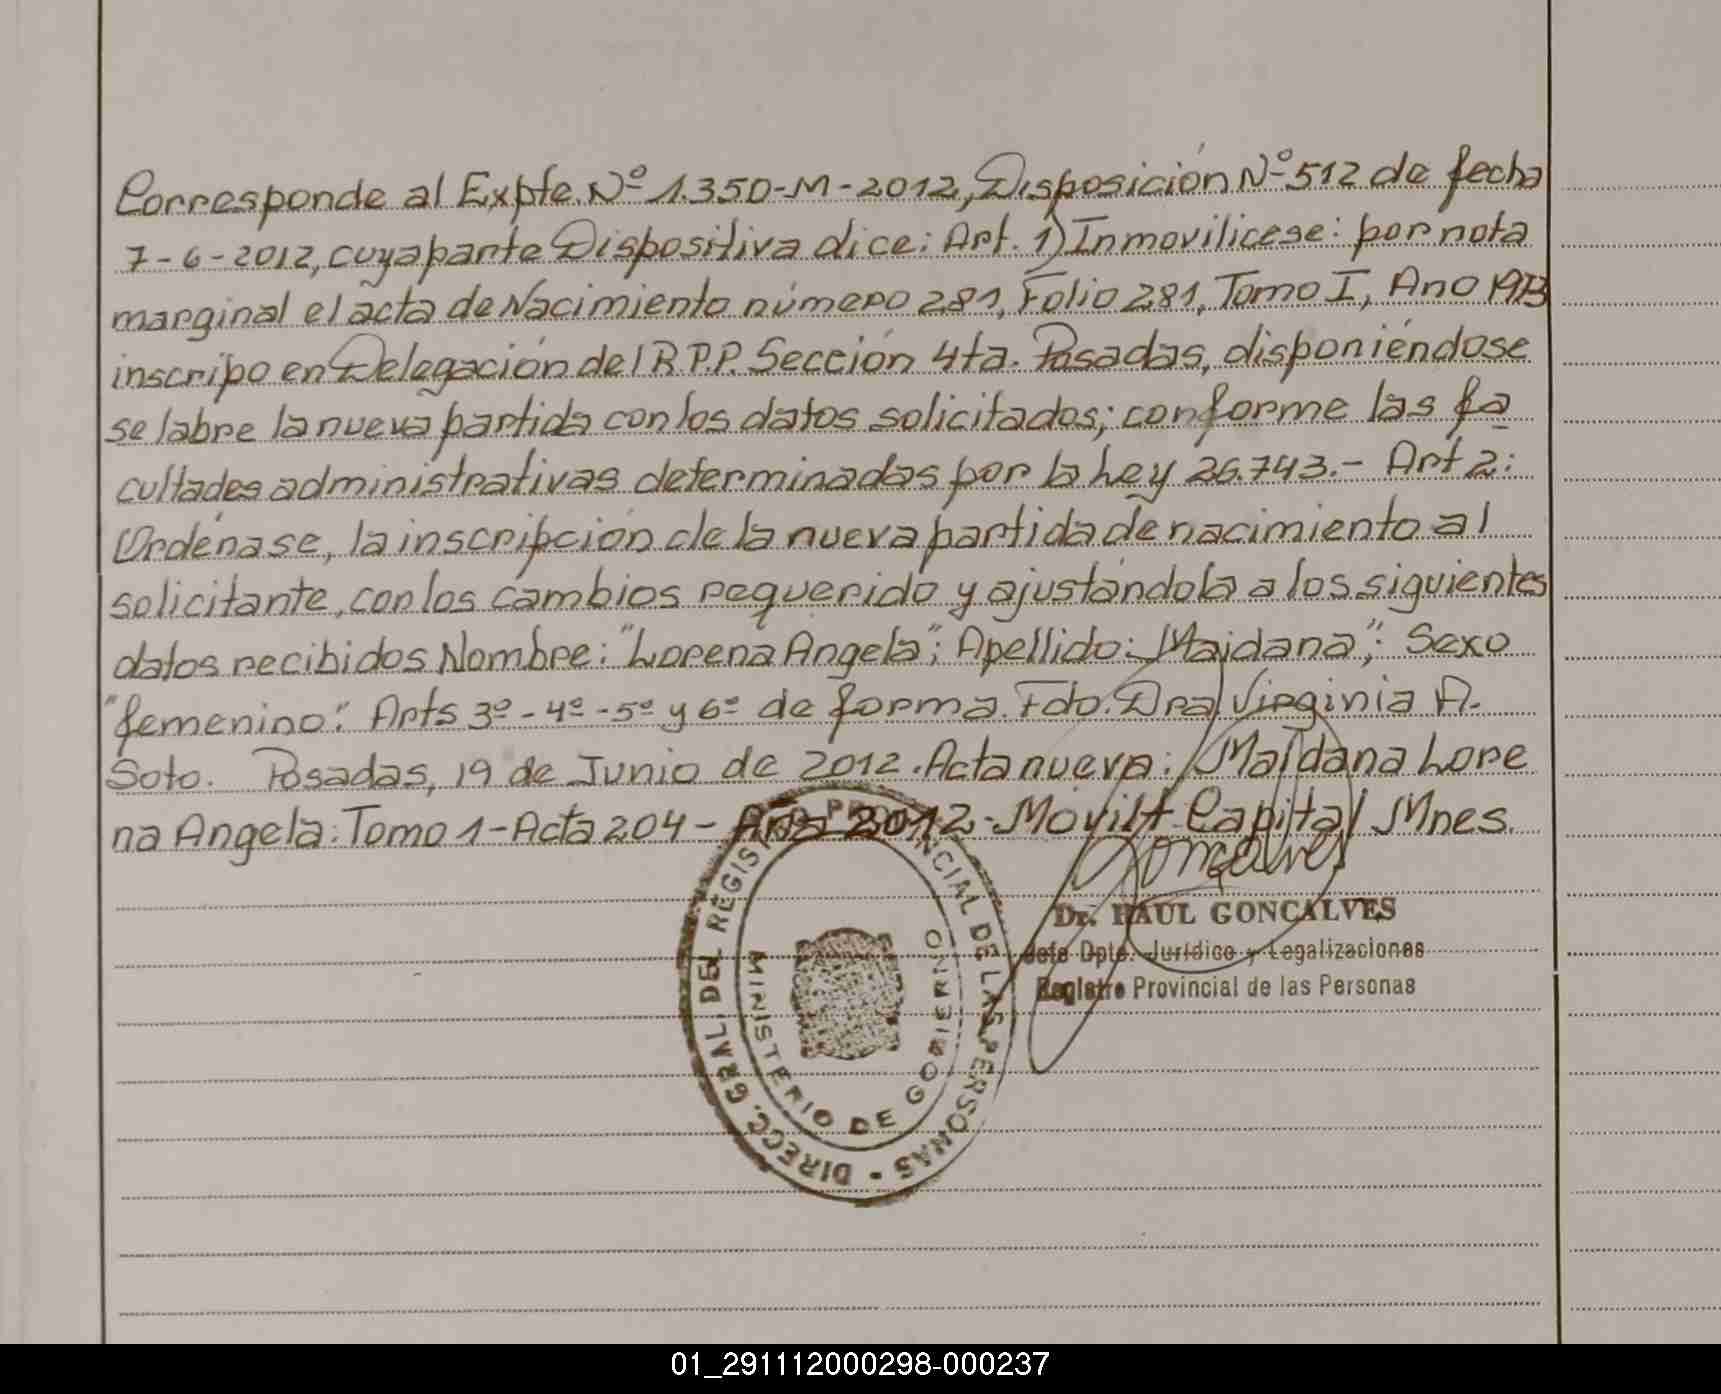 Corresponde al Expte. Nº 1.350-M-2012, Disposición Nº 512 de fecha
7-6-2012, cuya parte Dispositiva dice: Art. 1) Inmovilicese: por nota
marginal el acta de Nacimiento número 281, Folio 281, Tomo I, Ano 1973
inscripo en Delegación del R.P.P. Sección 4ta. Posadas, disponiéndose
se labre la nueva partida con los datos solicitados; conforme las fa
cultades administrativas determinadas por la Ley 26.743.- Art 2:
Ordénase, la inscripción de la nueva partida de nacimiento al
solicitante, con los cambios requerido y ajustándola a los siguientes
datos recibidos Nombre: "Lorena Angela"; Apellido: Maidana"; Sexo
"femenino". Arts 3º-4º-5º y 6º de forma. Fdo. Dra Virginia A.
Soto. Posadas, 19 de Junio de 2012. Acta nueva: Maidana Lore
na Angela: Tomo 1-Acta 204- Año 2012-Móvil Capital Mnes.
Goncalves
Dr. RAUL GONCALVES
Jefe Dpto. Jurídico y Legalizaciones
Registro Provincial de las Personas
DIRECC. GRAL. DEL REGISTRO PROVINCIAL DE LAS PERSONAS -
MINISTERIO DE GOBIERNO
01_291112000298-000237